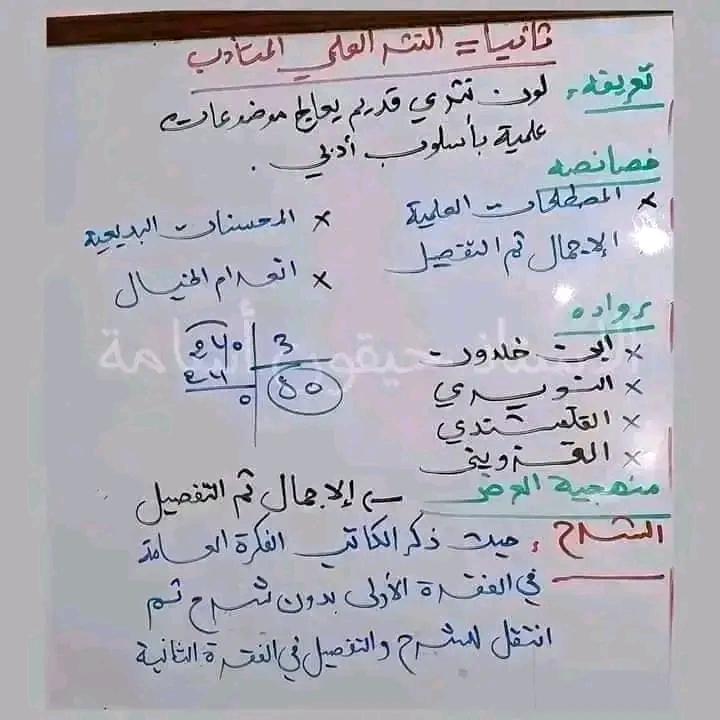 ثانيا = النثر العلمي المتأدب
تعريفه، لون نثري قديم يعالج موضوعات
علمية بأسلوب أدبي .
خصائصه
× المصطلحات العلمية × المحسنات البديعية
الإجمال ثم التفصيل × انعدام الخيال
رواده
240 3
24 80
0
× ابن خلدون
× النويري
× القلقشندي
× القزويني
منهجية العرض ← الإجمال ثم التفصيل
الشرح : حيث ذكر الكاتب الفكرة العامة
في الفقرة الأولى بدون شرح ثم
انتقل للشرح والتفصيل في الفقرة الثانية
الأستاذ حيقون أسامة